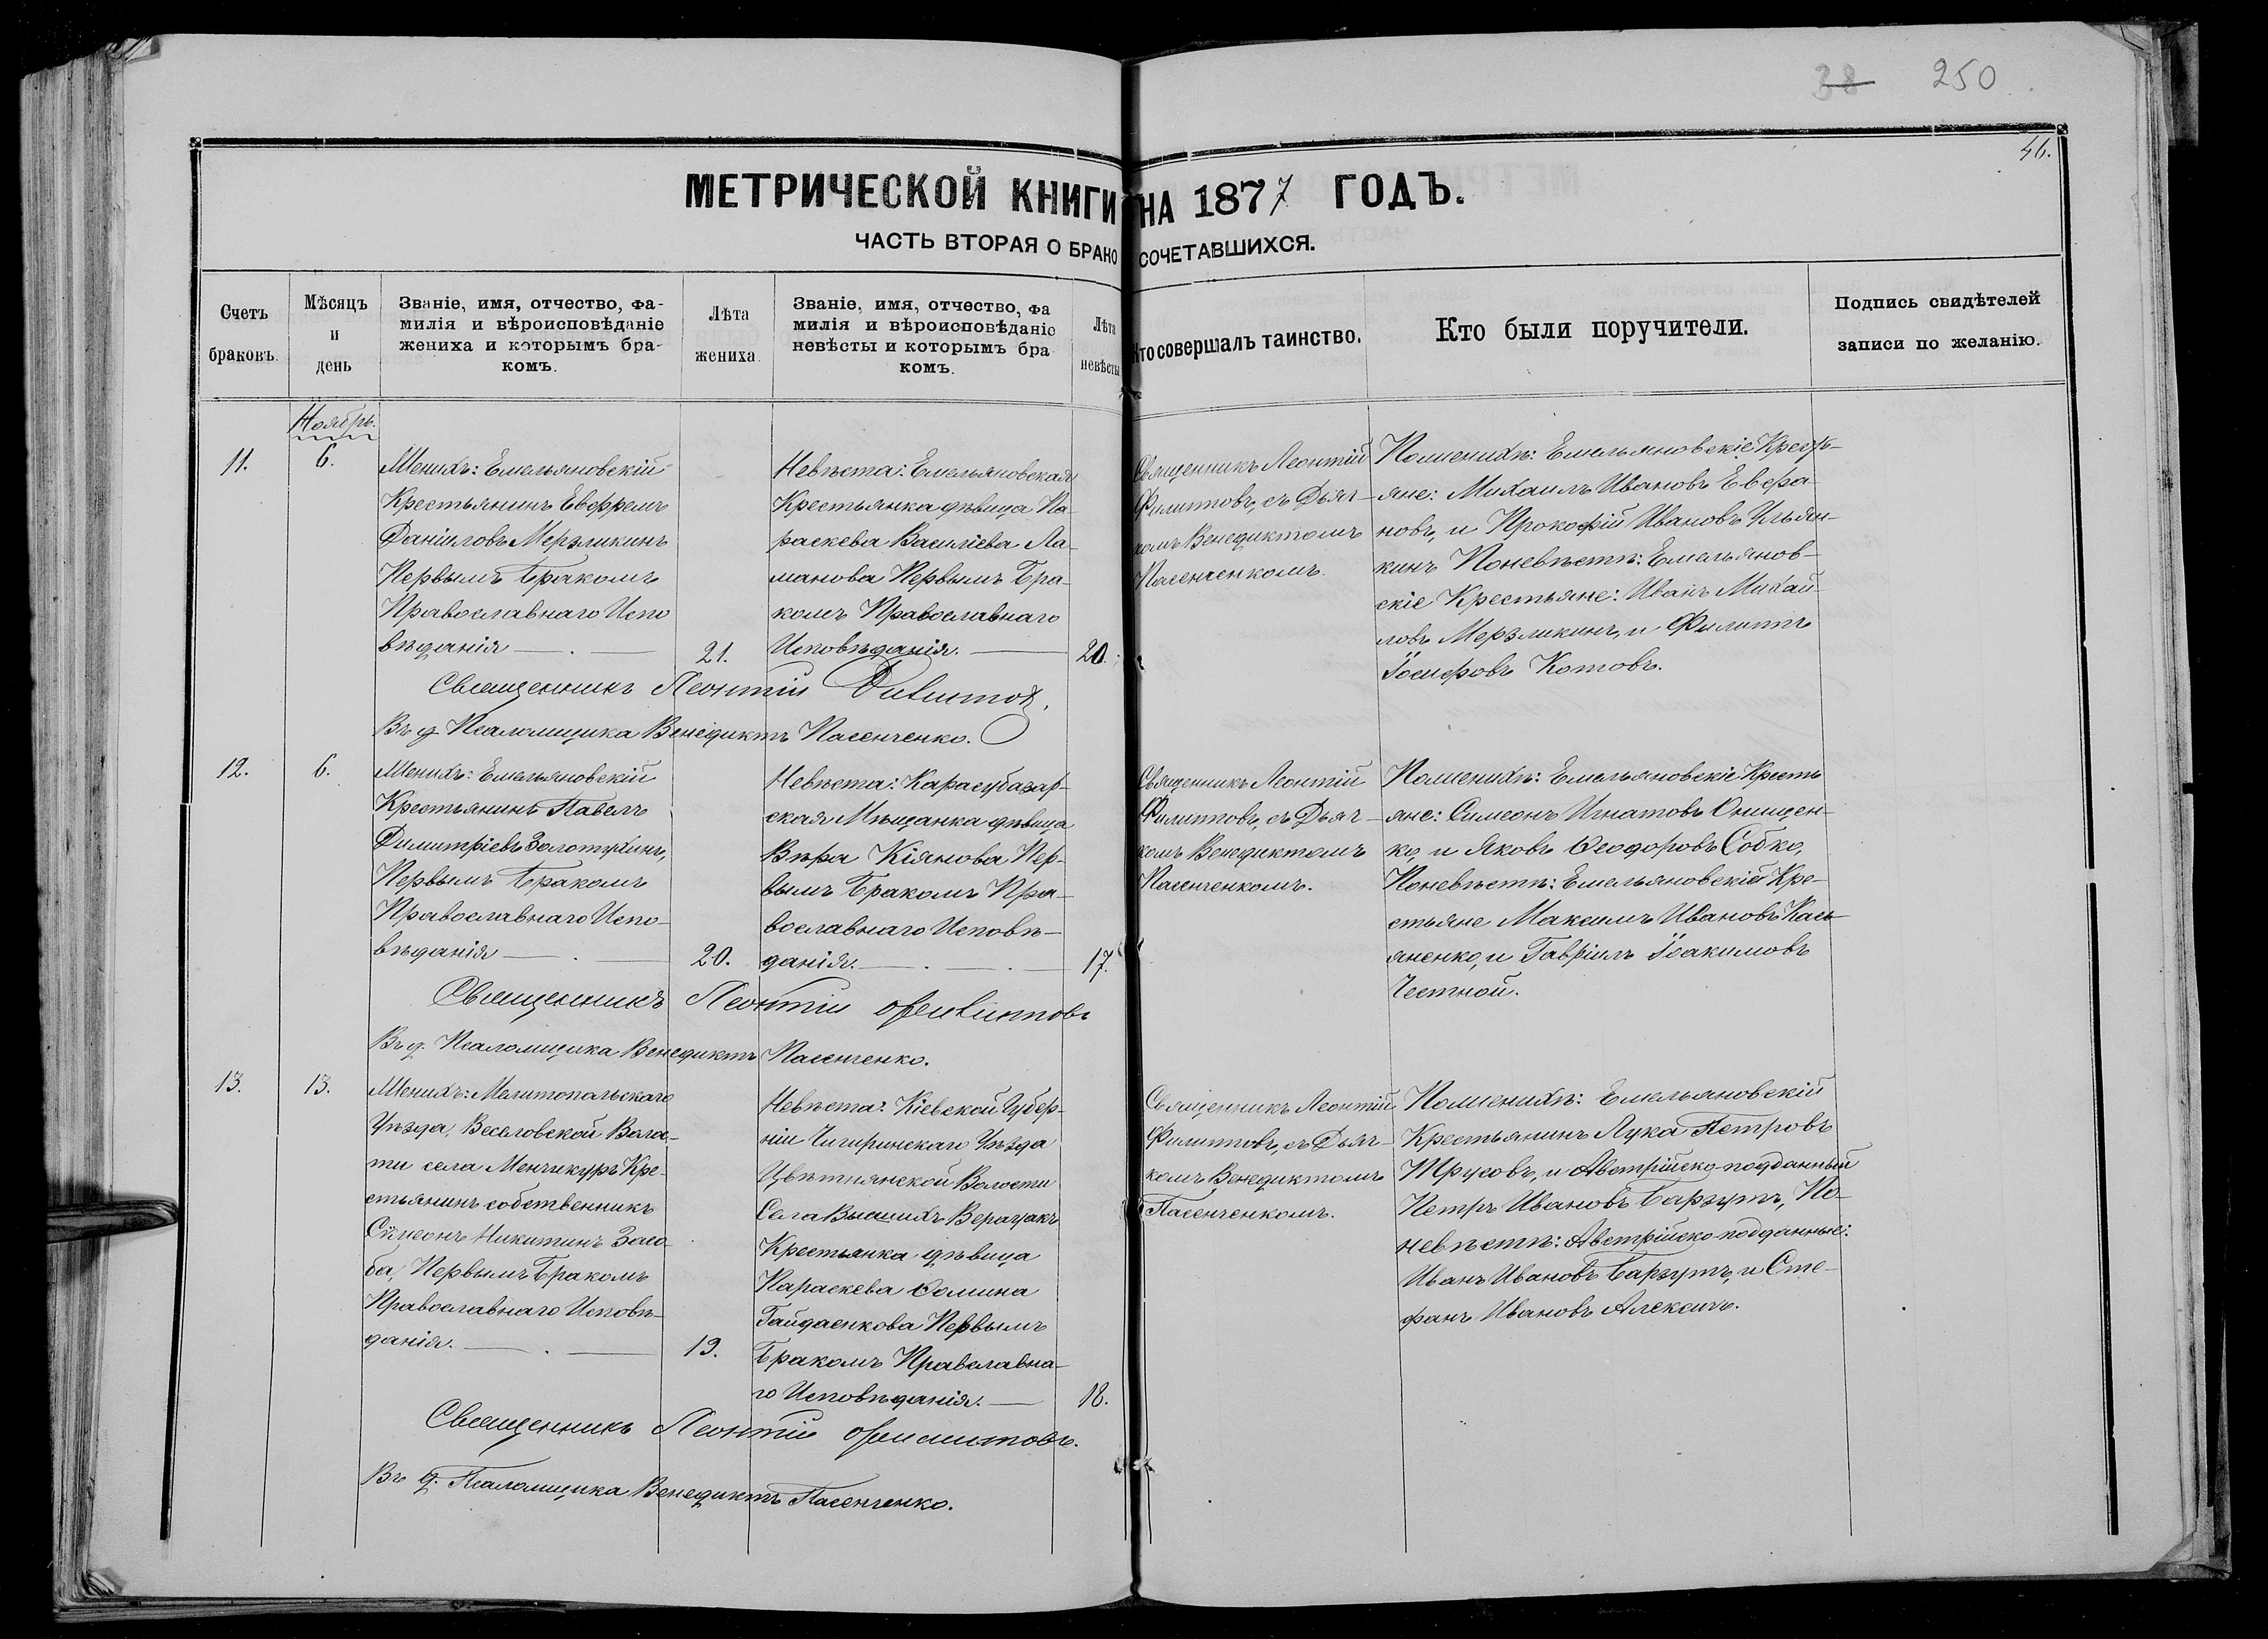 38 250
46.
МЕТРИЧЕСКОЙ КНИГИ НА 1877 ГОДЪ.
ЧАСТЬ ВТОРАЯ О БРАКО СОЧЕТАВШИХСЯ.
Счетъ
браковъ.
Мѣсяцъ
и
день
Званіе, имя, отчество, фа-
милія и вѣроисповѣданіе
жениха и которымъ бра-
комъ.
Лѣта
жениха.
Званіе, имя, отчество, фа
милія и вѣроисповѣданіе
невѣсты и которымъ бра
комъ.
Лѣта
невѣсты
Кто совершалъ таинство.
Кто были поручители.
Подпись свидѣтелей
записи по желанію.
Ноябрь.
11.
6.
Женихъ: Емельяновскій
Крестьянинъ Евфремъ
Даніиловъ Мерзликинъ
Первымъ Бракомъ
Православнаго Испо
вѣданія
21.
Невѣста: Емельяновская
Крестьянка дѣвица Па-
раскева Василіева Ла-
манова Первымъ Бра-
комъ Православнаго
Исповѣданія.
20.
Священникъ Леонтій
Филиптовъ, съ Дьяч-
комъ Венедиктомъ
Пасенченкомъ.
Пожениxѣ: Емельяновскіе Кресть-
яне: Михаилъ Ивановъ Евфра-
новъ, и Прокофій Ивановъ Ульян-
кинъ Поневѣстѣ: Емельянов-
скіе Крестьяне: Иванъ Михай-
ловъ Мерзликинъ, и Филиппъ
Іосифовъ Котовъ.
Священникъ Леонтій Филиптовъ.
Въ д. Псаломщика Венедиктъ Пасенченко.
12.
6.
Женихъ: Емельяновскій
Крестьянинъ Павелъ
Димитріевъ Золотухинъ,
Первымъ Бракомъ
Православнаго Испо-
вѣданія
20.
Невѣста: Карасубазар-
ская Мѣщанка дѣвица
Вѣра Кіянова Пер-
вымъ Бракомъ Пра-
вославнаго Исповѣ-
данія.
17.
Священникъ Леонтій
Филиптовъ, съ Дьяч-
комъ Венедиктомъ
Пасенченкомъ.
Поженихѣ: Емельяновскіе Кресть
яне: Симеонъ Игнатовъ Онищен-
ко, и Яковъ Ѳеодоровъ Собко,
Поневѣстѣ: Емельяновскій Кре-
стьяне Максимъ Ивановъ Кась-
яненко, и Гавріилъ Іоакимовъ
Честной.
Священникъ Леонтій Филиптовъ
Въ д. Псаломщика Венедиктъ Пасенченко.
13.
13.
Женихъ: Мелитопольскаго
Уѣзда, Веселовской Воло-
сти села Менчикуръ Кре-
стьянинъ собственникъ
Сѵмеонъ Никитинъ Засо-
ба, Первымъ Бракомъ
Православнаго Исповѣ-
данія.
19.
Невѣста: Кіевской Губер-
ніи Чигиринскаго Уѣзда
Цвѣтнянской Волости
Села Высшихъ Верещакъ
Крестьянка дѣвица
Параскева Ѳомина
Гайдаенкова Первымъ
Бракомъ Православна-
го Исповѣданія.
18.
Священникъ Леонтій
Филиптовъ, съ Дьяч-
комъ Венедиктомъ
Пасенченкомъ.
Поженихѣ: Емельяновскій
Крестьянинъ Лука Петровъ
Трусовъ, и Австрійско-подданный
Петръ Ивановъ Баргутъ, По-
невѣстѣ: Австрійско-подданные:
Иванъ Ивановъ Баргутъ, и Сте-
фанъ Ивановъ Алексичъ.
Священникъ Леонтій Филиптовъ.
Въ д. Псаломщика Венедиктъ Пасенченко.